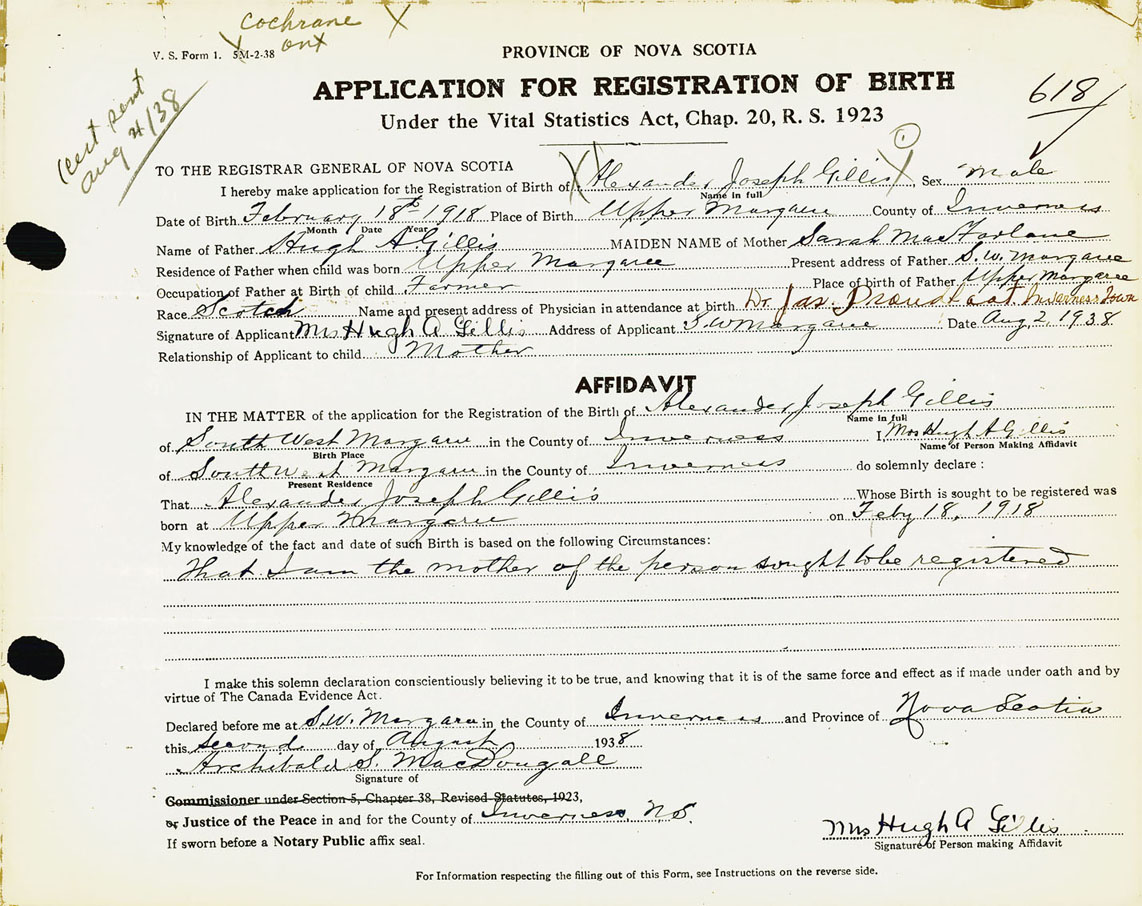 Cochrane X
X Ont
V. S. Form 1. 5M-2-38
PROVINCE OF NOVA SCOTIA
APPLICATION FOR REGISTRATION OF BIRTH
Under the Vital Statistics Act, Chap. 20, R. S. 1923
618
Cert sent
Aug 4/38
1
TO THE REGISTRAR GENERAL OF NOVA SCOTIA
I hereby make application for the Registration of Birth of Alexander Joseph Gillis, Sex Male
Name in full
Date of Birth February 18th 1918 Place of Birth Upper Margaree County of Inverness
Month Date Year
Name of Father Hugh A Gillis MAIDEN NAME of Mother Sarah MacFarlane
Residence of Father when child was born Upper Margaree Present address of Father S.W. Margaree
Occupation of Father at Birth of child Farmer Place of birth of Father Upper Margaree
Race Scotch Name and present address of Physician in attendance at birth Dr. Jas. Proudfoot Inverness Town
Signature of Applicant Mrs Hugh A Gillis Address of Applicant S.W Margaree Date Aug 2, 1938
Relationship of Applicant to child Mother
AFFIDAVIT
IN THE MATTER of the application for the Registration of the Birth of Alexander Joseph Gillis
Name in full
of South West Margaree in the County of Inverness I Mrs Hugh A Gillis
Birth Place Name of Person Making Affidavit
of South West Margaree in the County of Inverness do solemnly declare:
Present Residence
That Alexander Joseph Gillis Whose Birth is sought to be registered was
born at Upper Margaree on Feby 18, 1918
My knowledge of the fact and date of such Birth is based on the following Circumstances:
That I am the mother of the person sought to be registered
I make this solemn declaration conscientiously believing it to be true, and knowing that it is of the same force and effect as if made under oath and by
virtue of The Canada Evidence Act.
Declared before me at S.W. Margaree in the County of Inverness and Province of Nova Scotia
this second day of August 1938
Archibald S. MacDougall
Signature of
Commissioner under Section 5, Chapter 38, Revised Statutes, 1923,
or Justice of the Peace in and for the County of Inverness, N.S.
If sworn before a Notary Public affix seal.
Mrs Hugh A Gillis
Signature of Person making Affidavit
For Information respecting the filling out of this Form, see Instructions on the reverse side.